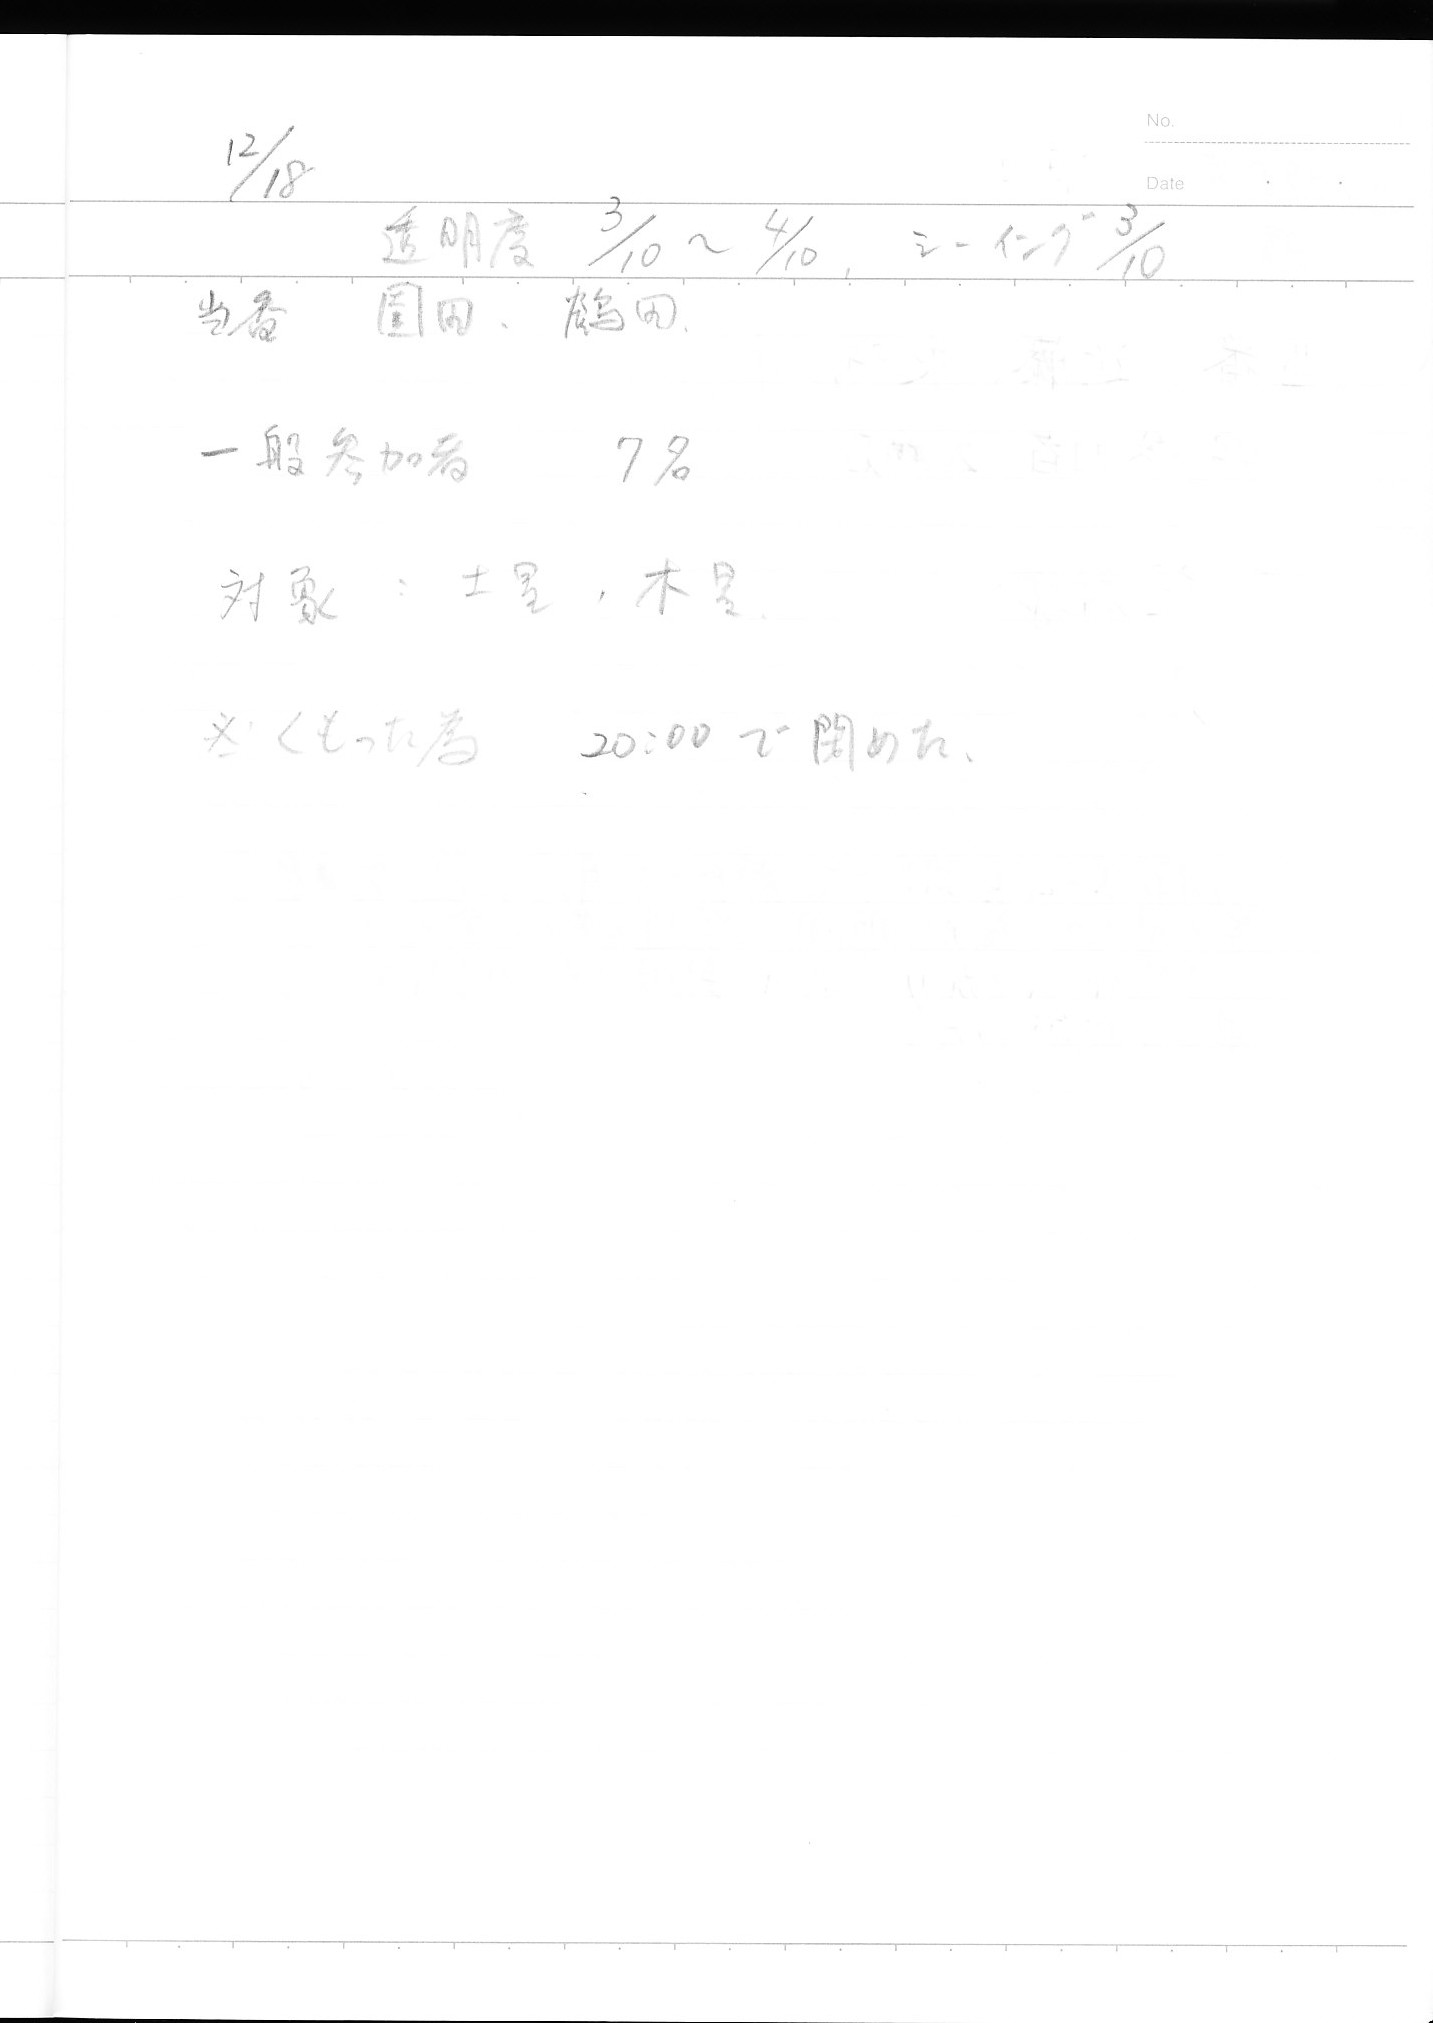 No.
12/18
Date
透明度 3/10 〜 4/10, シーイング 3/10
当番 園田、鶴田、
一般参加者 7名
対象 : 土星, 木星
※くもった為 20:00 で閉めた、